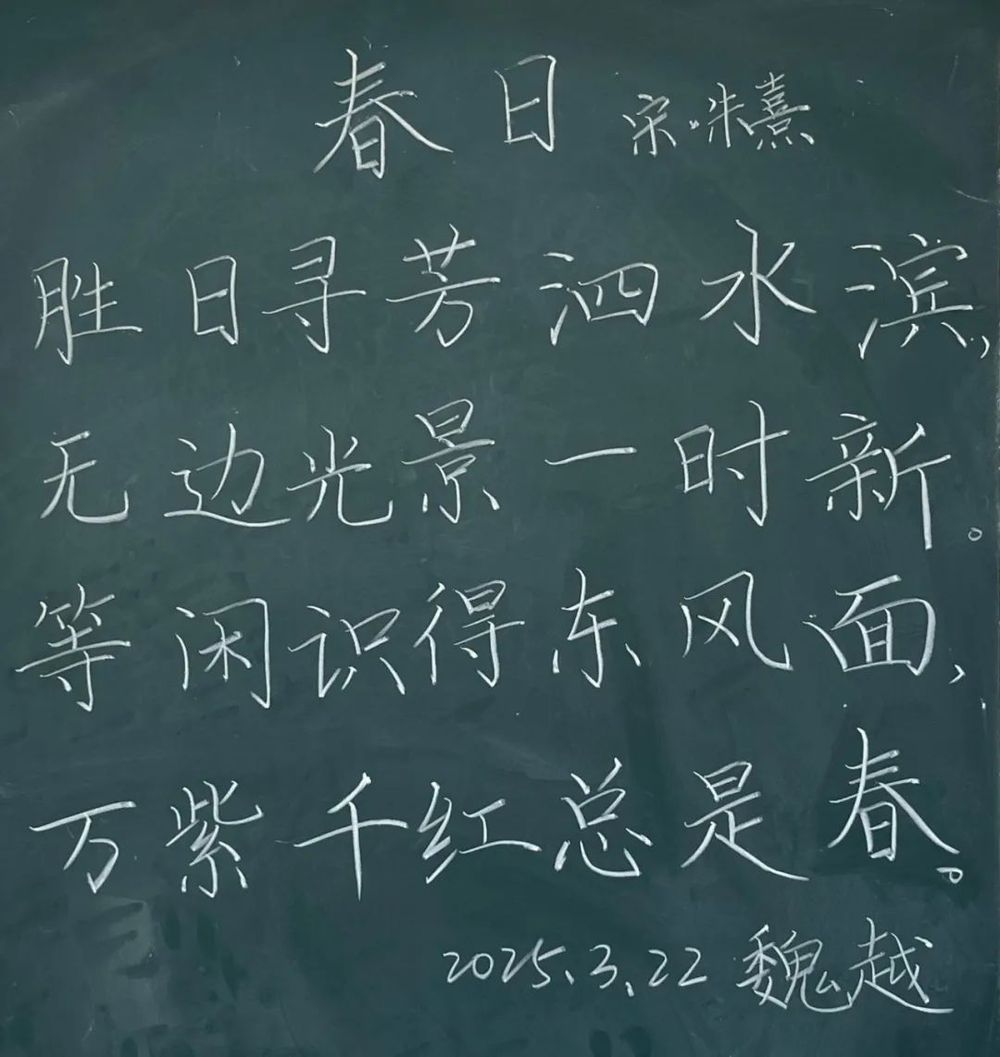 春日 宋·朱熹
胜日寻芳泗水滨,
无边光景一时新。
等闲识得东风面,
万紫千红总是春。
2025.3.22 魏越